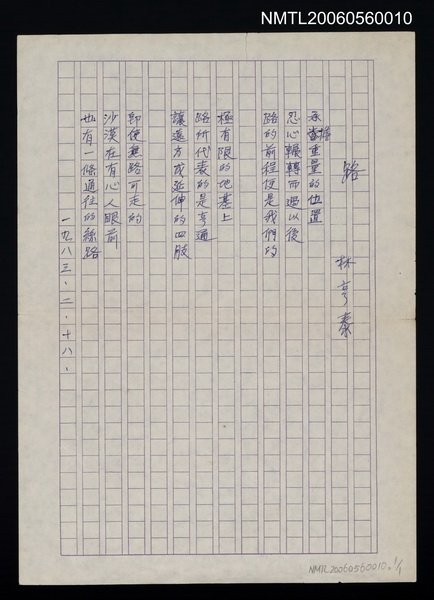 NMTL20060560010
路
林亨泰
承擔重量的位置
忍心輾轉而過以後
路的前程便是我們的
極有限的地基上
路所代表的是亨通
讓遠方成延伸的四肢
即使無路可走的
沙漠在有心人眼前
也有一條通往的絲路
一九八三.二.十八.
NMTL20060560010 1/1